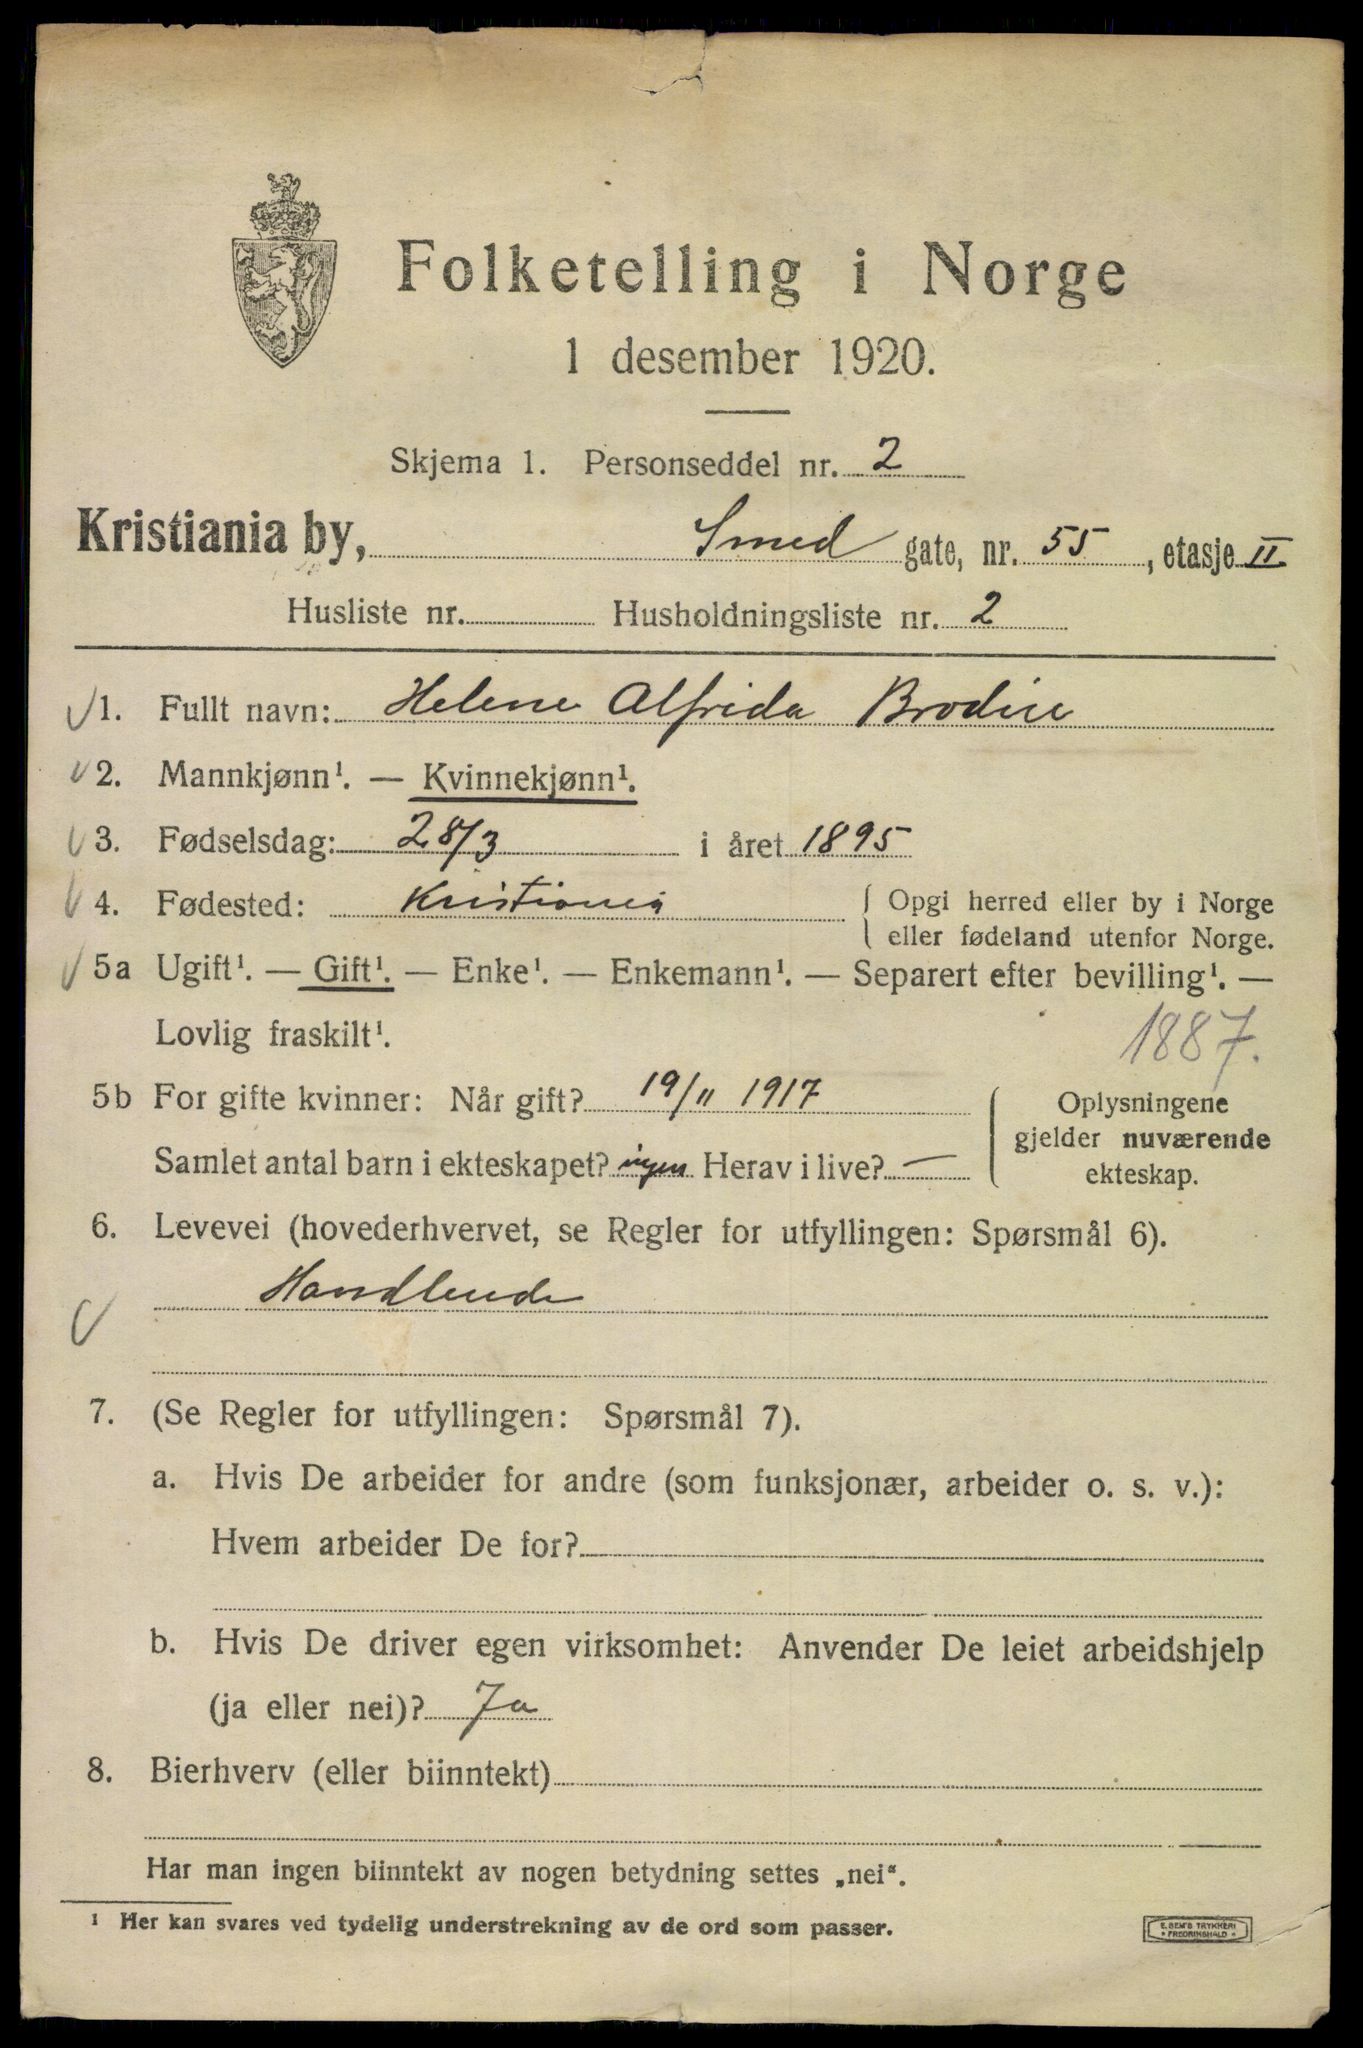 Folketelling i Norge
1 desember 1920.
Skjema 1. Personseddel nr. 2
Kristiania by, Smed gate, nr. 55, etasje II
Husliste nr. Husholdningsliste nr. 2
1. Fullt navn: Helene Alfrida
2. Mannkjønn¹. — Kvinnekjønn¹.
3. Fødselsdag: 28/3 i året 1895
4. Fødested: Kristiania { Opgi herred eller by i Norge
eller fødeland utenfor Norge.
5a Ugift¹. — Gift¹. — Enke¹. — Enkemann¹. — Separert efter bevilling¹. —
Lovlig fraskilt¹.
1887.
5b For gifte kvinner: Når gift? 19/11 1917
Samlet antal barn i ekteskapet? ingen Herav i live? —
Oplysningene
gjelder nuværende
ekteskap.
6. Levevei (hovederhvervet, se Regler for utfyllingen: Spørsmål 6).
Handlende
7. (Se Regler for utfyllingen: Spørsmål 7).
a. Hvis De arbeider for andre (som funksjonær, arbeider o. s. v.):
Hvem arbeider De for?
b. Hvis De driver egen virksomhet: Anvender De leiet arbeidshjelp
(ja eller nei)? Ja
8. Bierhverv (eller biinntekt)
Har man ingen biinntekt av nogen betydning settes „nei“.
¹ Her kan svares ved tydelig understrekning av de ord som passer.
E. SEM'S TRYKKERI
• FREDRIKSHALD •